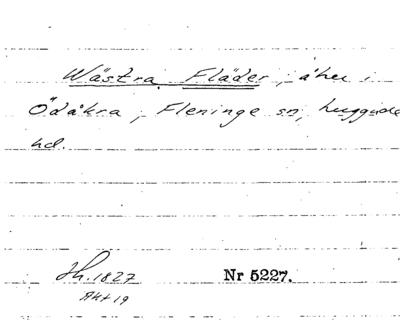 Wästra Fläder, åker i
Ödåkra, Fleninge sn, Luggude
hd.
Sh. 1827
Akt 19
Nr 5227.